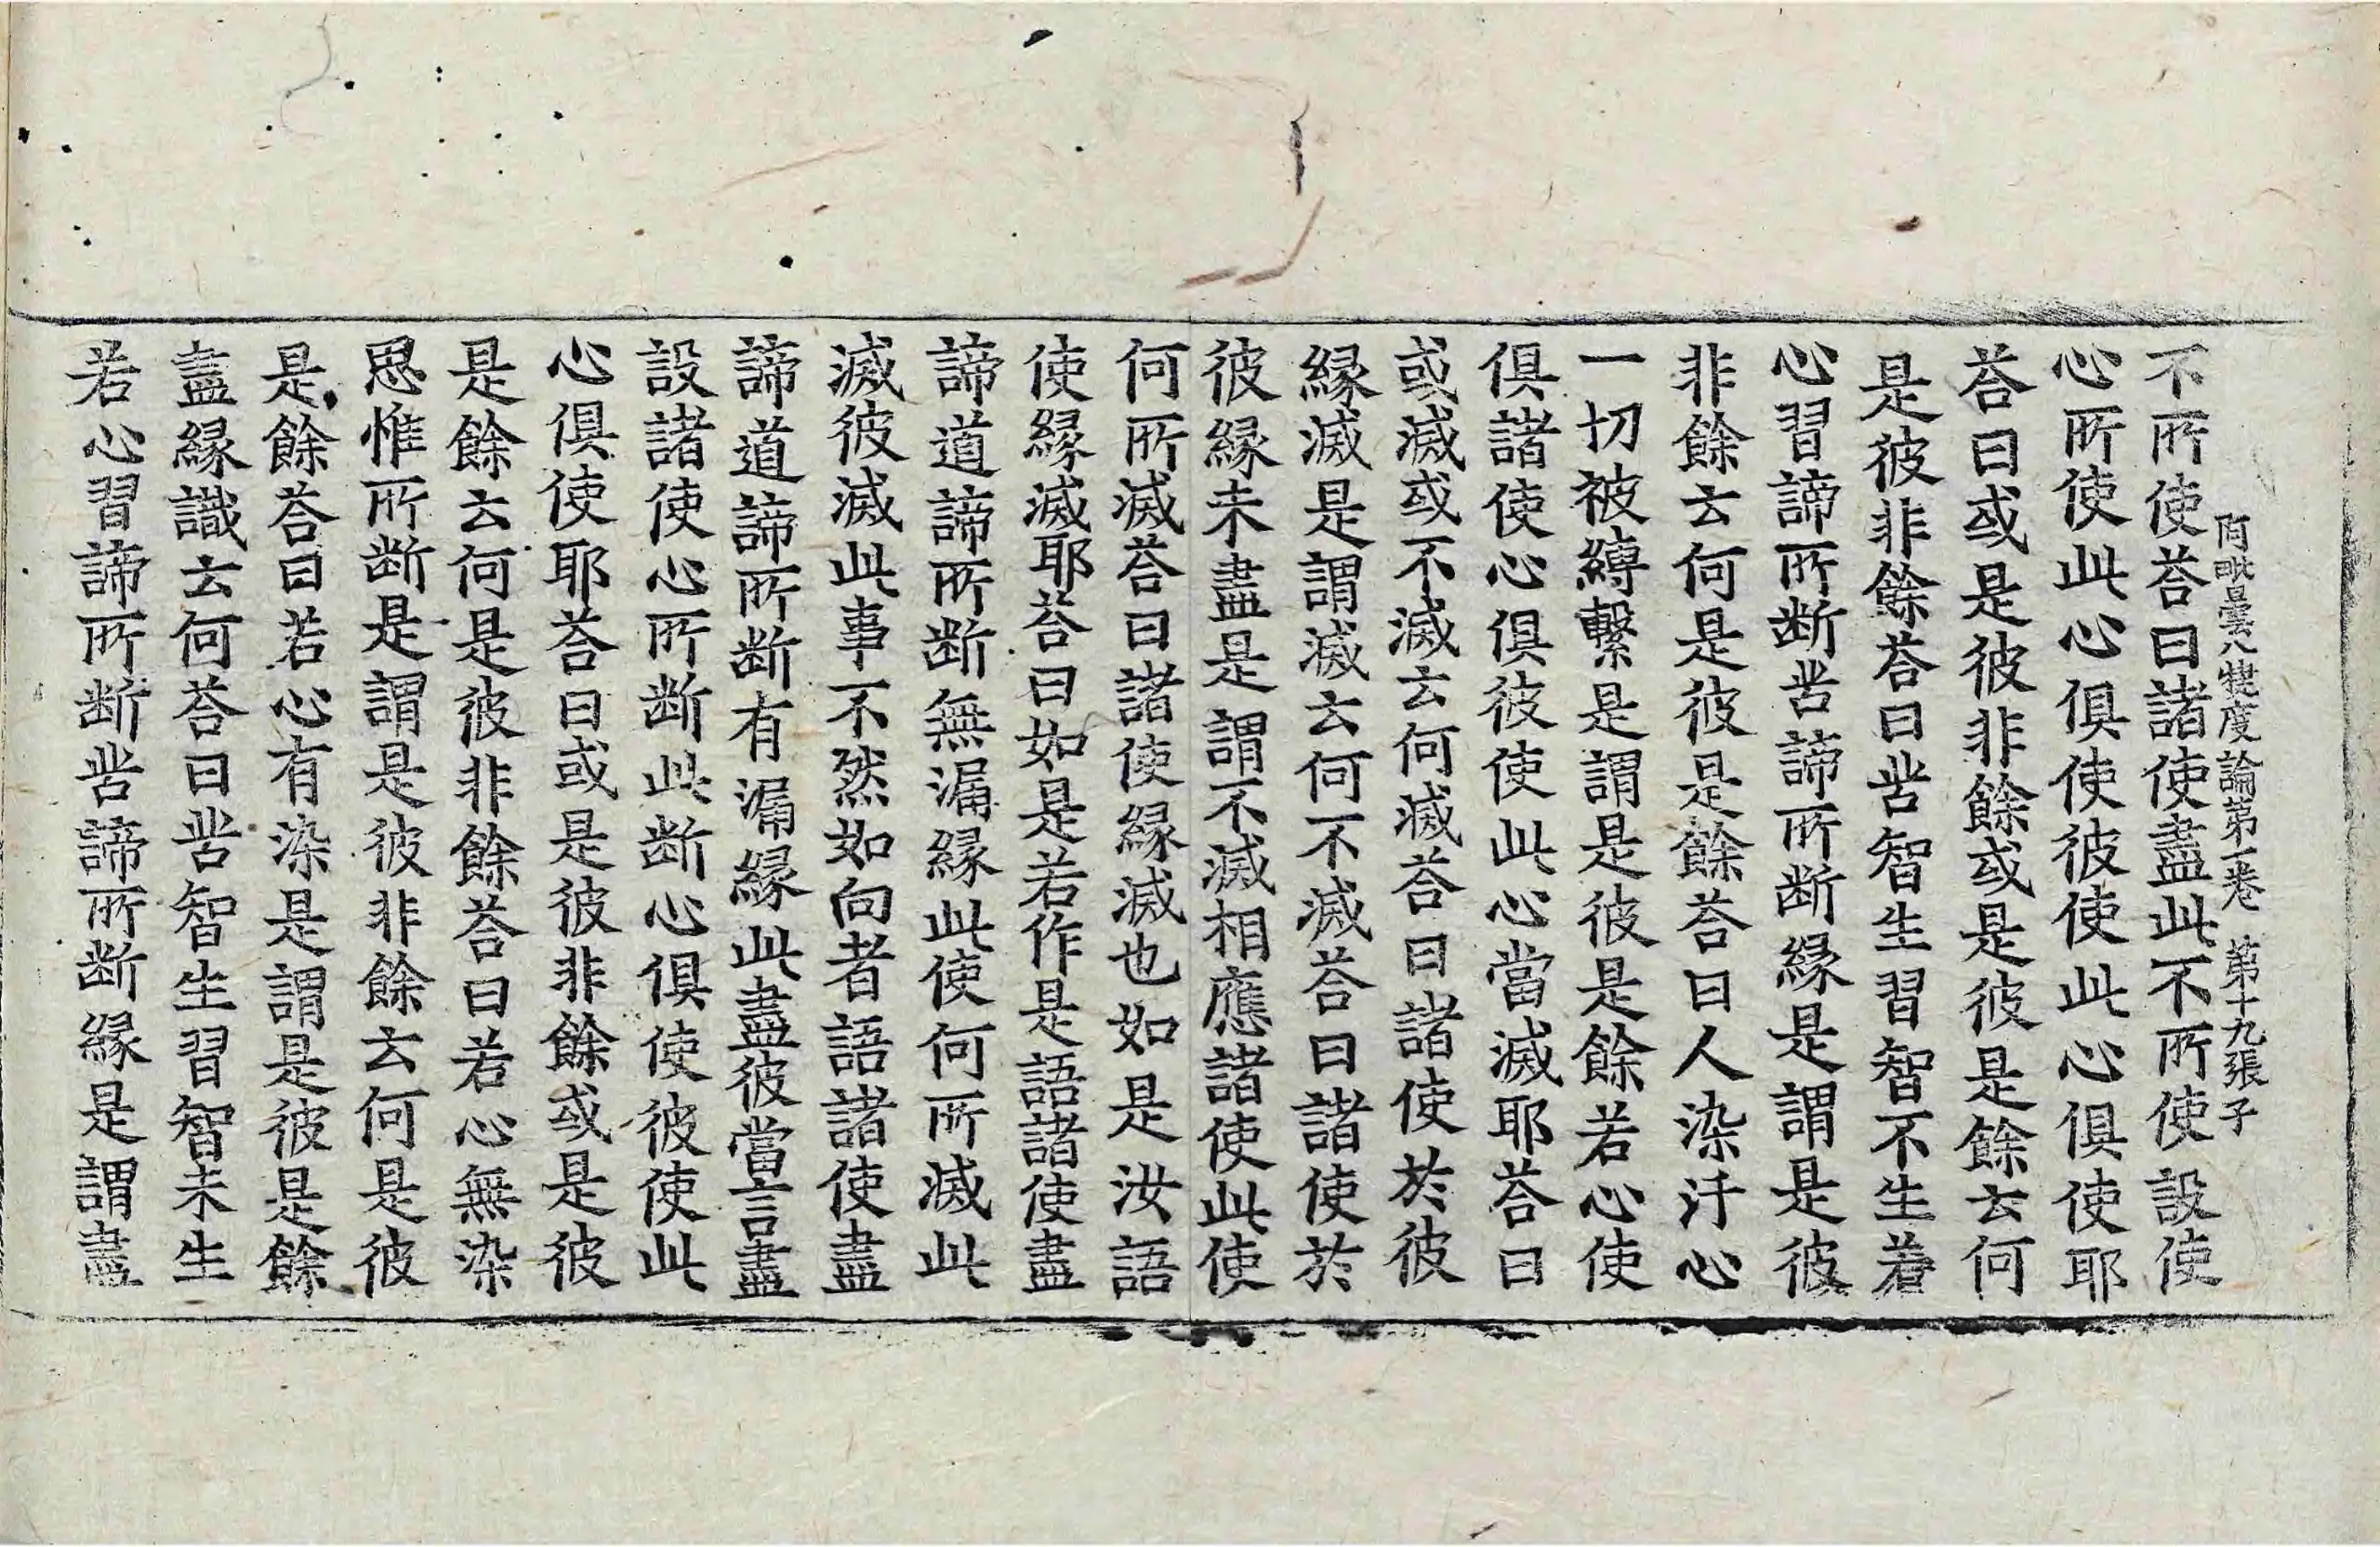 阿毗曇八犍度論第一卷 第十九張 子
不所使荅曰諸使盡此不所使設使
心所使此心俱使彼使此心俱使耶
荅曰或是彼非餘或是彼是餘云何
是彼非餘荅曰苦智生習智不生若
心習諦所斷苦諦所斷緣是謂是彼
非餘云何是彼是餘荅曰人染汙心
一切被縛繫是謂是彼是餘若心使
俱諸使心俱彼使此心當滅耶荅曰
或滅或不滅云何滅荅曰諸使於彼
緣滅是謂滅云何不滅荅曰諸使於
彼緣未盡是謂不滅相應諸使此使
何所滅荅曰諸使緣滅也如是汝語
使緣滅耶荅曰如是若作是語諸使盡
諦道諦所斷無漏緣此使何所滅此
滅彼滅此事不然如向者語諸使盡
諦道諦所斷有漏緣此盡彼當言盡
設諸使心所斷此斷心俱使彼使此
心俱使耶荅曰或是彼非餘或是彼
是餘云何是彼非餘荅曰若心無染
思惟所斷是謂是彼非餘云何是彼
是餘荅曰若心有染是謂是彼是餘
盡緣識云何荅曰苦智生習智未生
若心習諦所斷苦諦所斷緣是謂盡